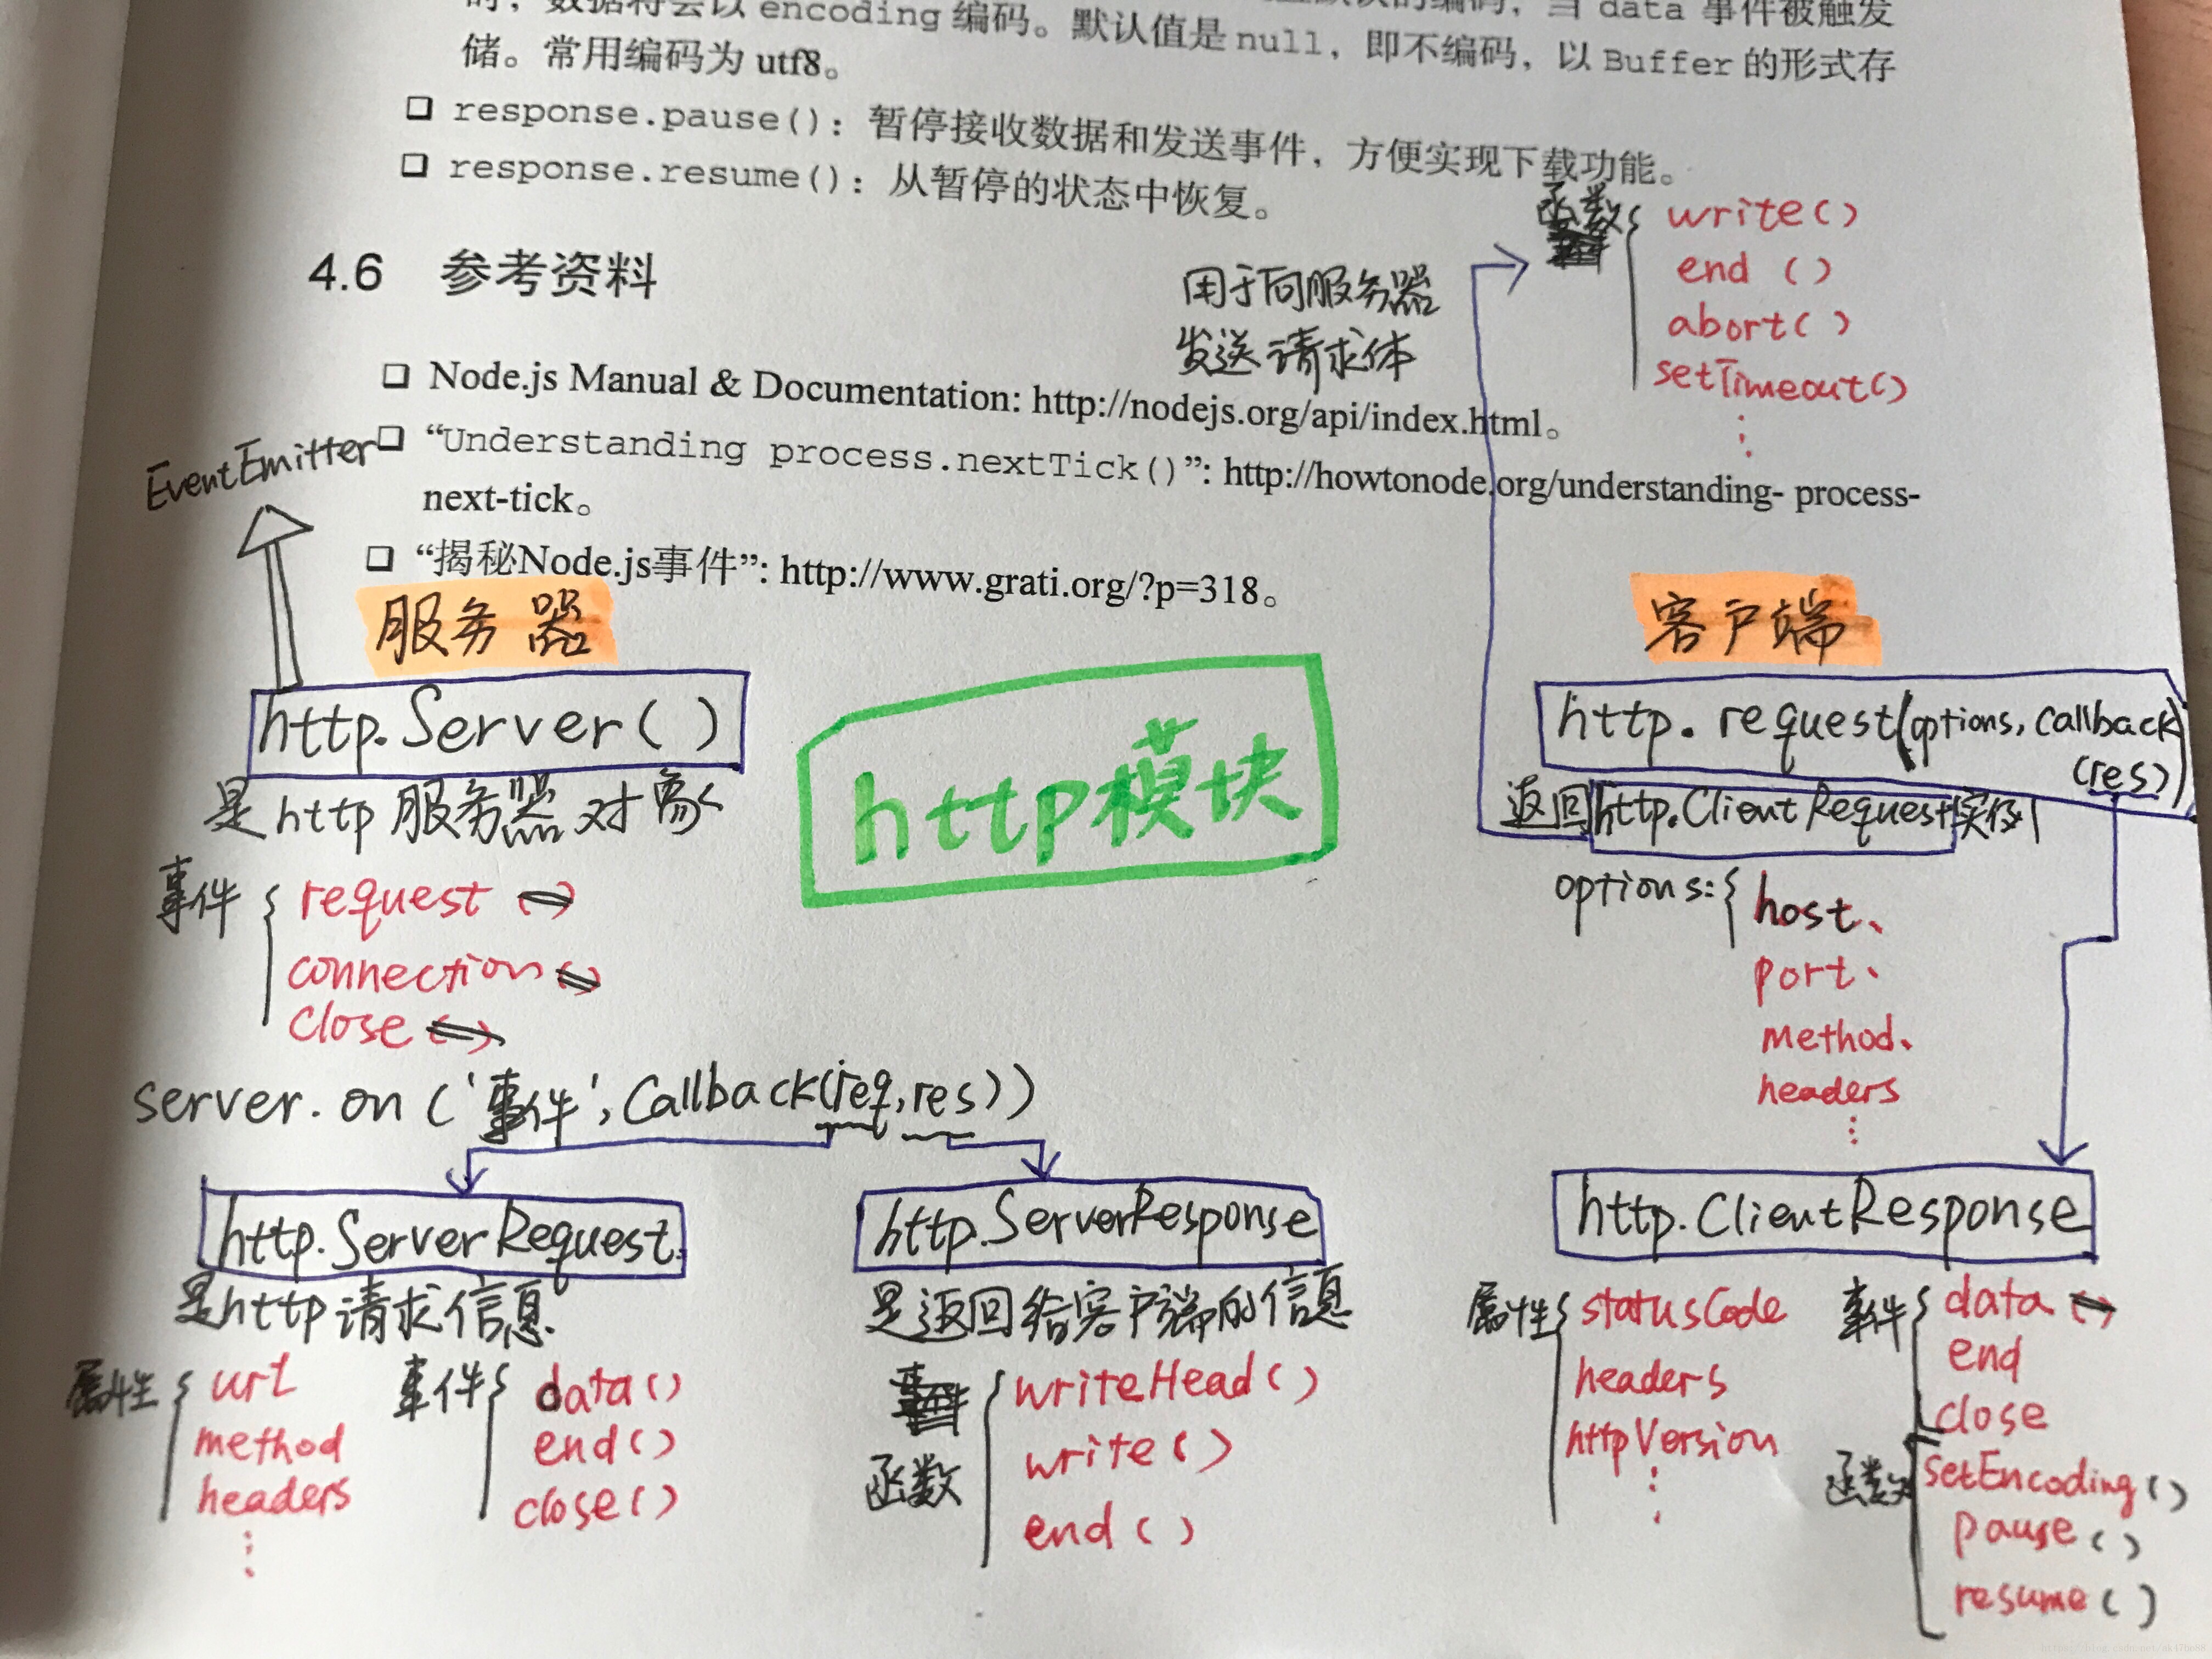 时，数据将会以 encoding 编码。默认值是 null，即不编码，以 Buffer 的形式存
的编码，当 data 事件被触发
储。常用编码为 utf8。
❑ response.pause()：暂停接收数据和发送事件，方便实现下载功能。
❑ response.resume()：从暂停的状态中恢复。
函数
write()
end ()
abort()
setTimeout()
4.6 参考资料
用于向服务器
发送请求体
❑ Node.js Manual & Documentation: http://nodejs.org/api/index.html。
❑ “Understanding process.nextTick()”: http://howtonode.org/understanding- process-
next-tick。
❑ “揭秘Node.js事件”: http://www.grati.org/?p=318。
EventEmitter
服务器
http.Server()
是http服务器对象
事件
request
connection
close
server.on('事件',Callback(req,res))
http模块
客户端
http.request(options,callback
(res))
返回http.ClientRequest实例
options:
host、
port、
method、
headers
http.ServerRequest.
是http请求信息.
属性
url
method
headers
事件
data()
end()
close()
http.ServerResponse
是返回给客户端的信息
函数
writeHead()
write()
end()
http.ClientResponse
属性
statusCode
headers
httpVersion
事件
data
end
close
函数
setEncoding()
pause()
resume()